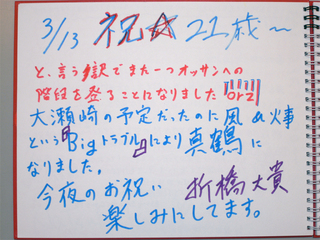 3/13 祝☆21歳〜
と、言う訳でまた一つオッサンへの
階段を登ることになりました orz
大瀬崎の予定だったのに風ぬ火事
というBigトラブルにより真鶴に
なりました。
今夜のお祝い 折橋大貴
楽しみにしてます。